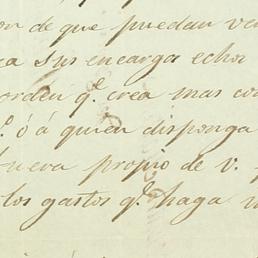 on de que puedan ve
a sus encarga echo
orden q.e crea mas co
.o ó á quien disponga
fuera propio de v.
los gastos q.e haga